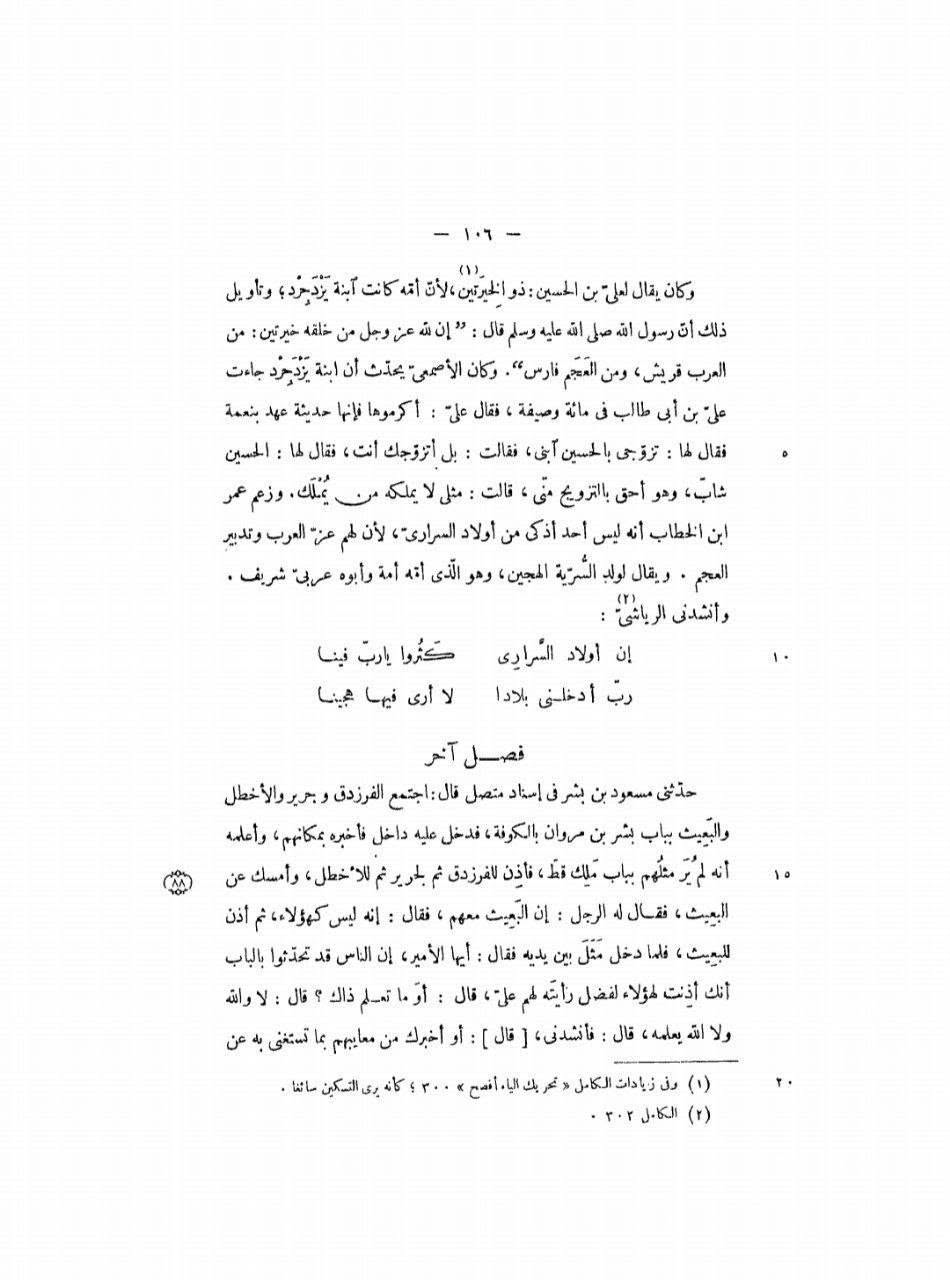 — ١٠٦ —
وكان يقال لعلىّ بن الحسين : ذو الخِيرَتين(١)، لأنّ أمّه كانت آبنة يَزْدَجِرْد ؛ وتأويل
ذلك أنّ رسول الله صلى الله عليه وسلم قال : ”إن لله عز وجل من خلقه خيرتين : من
العرب قريش ، ومن العَجَم فارس“. وكان الأصمعىّ يحدّث أن ابنة يَزْدَجِرْد جاءت
علىّ بن أبى طالب فى مائة وصيفة ، فقال علىّ : أكرموها فإنها حديثة عهد بنعمة
٥ فقال لها : تزوّجى بالحسين آبنى ، فقالت : بل أتزوّجك أنت ، فقال لها : الحسين
شابّ ، وهو أحق بالتزويج منّى ، قالت : مثلى لا يملكه من يُمْلَك . وزعم عمر
ابن الخطاب أنه ليس أحد أذكى من أولاد السرارىّ ، لأن لهم عزّ العرب وتدبير
العجم . ويقال لولد السُّرّية الهجين ، وهو الّذى أمّه أمة وأبوه عربىّ شريف .
وأنشدنى الرياشىّ(٢) :
١٠ إن أولاد السَّرارِى كَثُروا يارب فينا
ربّ أدخلنى بلادا لا أرى فيها هجينا
فصل آخر
حدّثنى مسعود بن بشر فى إسناد متصل قال : اجتمع الفرزدق وجرير والأخطل
والبَعِيث بباب بشر بن مروان بالكوفة ، فدخل عليه داخل فأخبره بمكانهم ، وأعلمه
١٥ أنه لم يُرَ مثلُهم بباب مَلِك قطّ ، فأذِن للفرزدق ثم لجرير ثم للأخطل ، وأمسك عن
٨٨
البعيث ، فقال له الرجل : إن البَعِيث معهم ، فقال : إنه ليس كهؤلاء ، ثم أذن
للبعيث ، فلما دخل مَثَلَ بين يديه فقال : أيها الأمير ، إن الناس قد تحدّثوا بالباب
أنك أذِنت لهؤلاء لفضل رأيتَه لهم علىّ ، قال : أوَ ما تعلم ذاك ؟ قال : لا والله
ولا الله يعلمه ، قال : فأنشدنى ، [ قال ] : أو أخبرك من معايبهم بما تستغنى به عن
٢٠ (١) وفى زيادات الكامل « تحريك الياء أفصح » ٣٠٠ ؛ كأنه يرى التسكين سائغا .
(٢) الكامل ٣٠٢ .